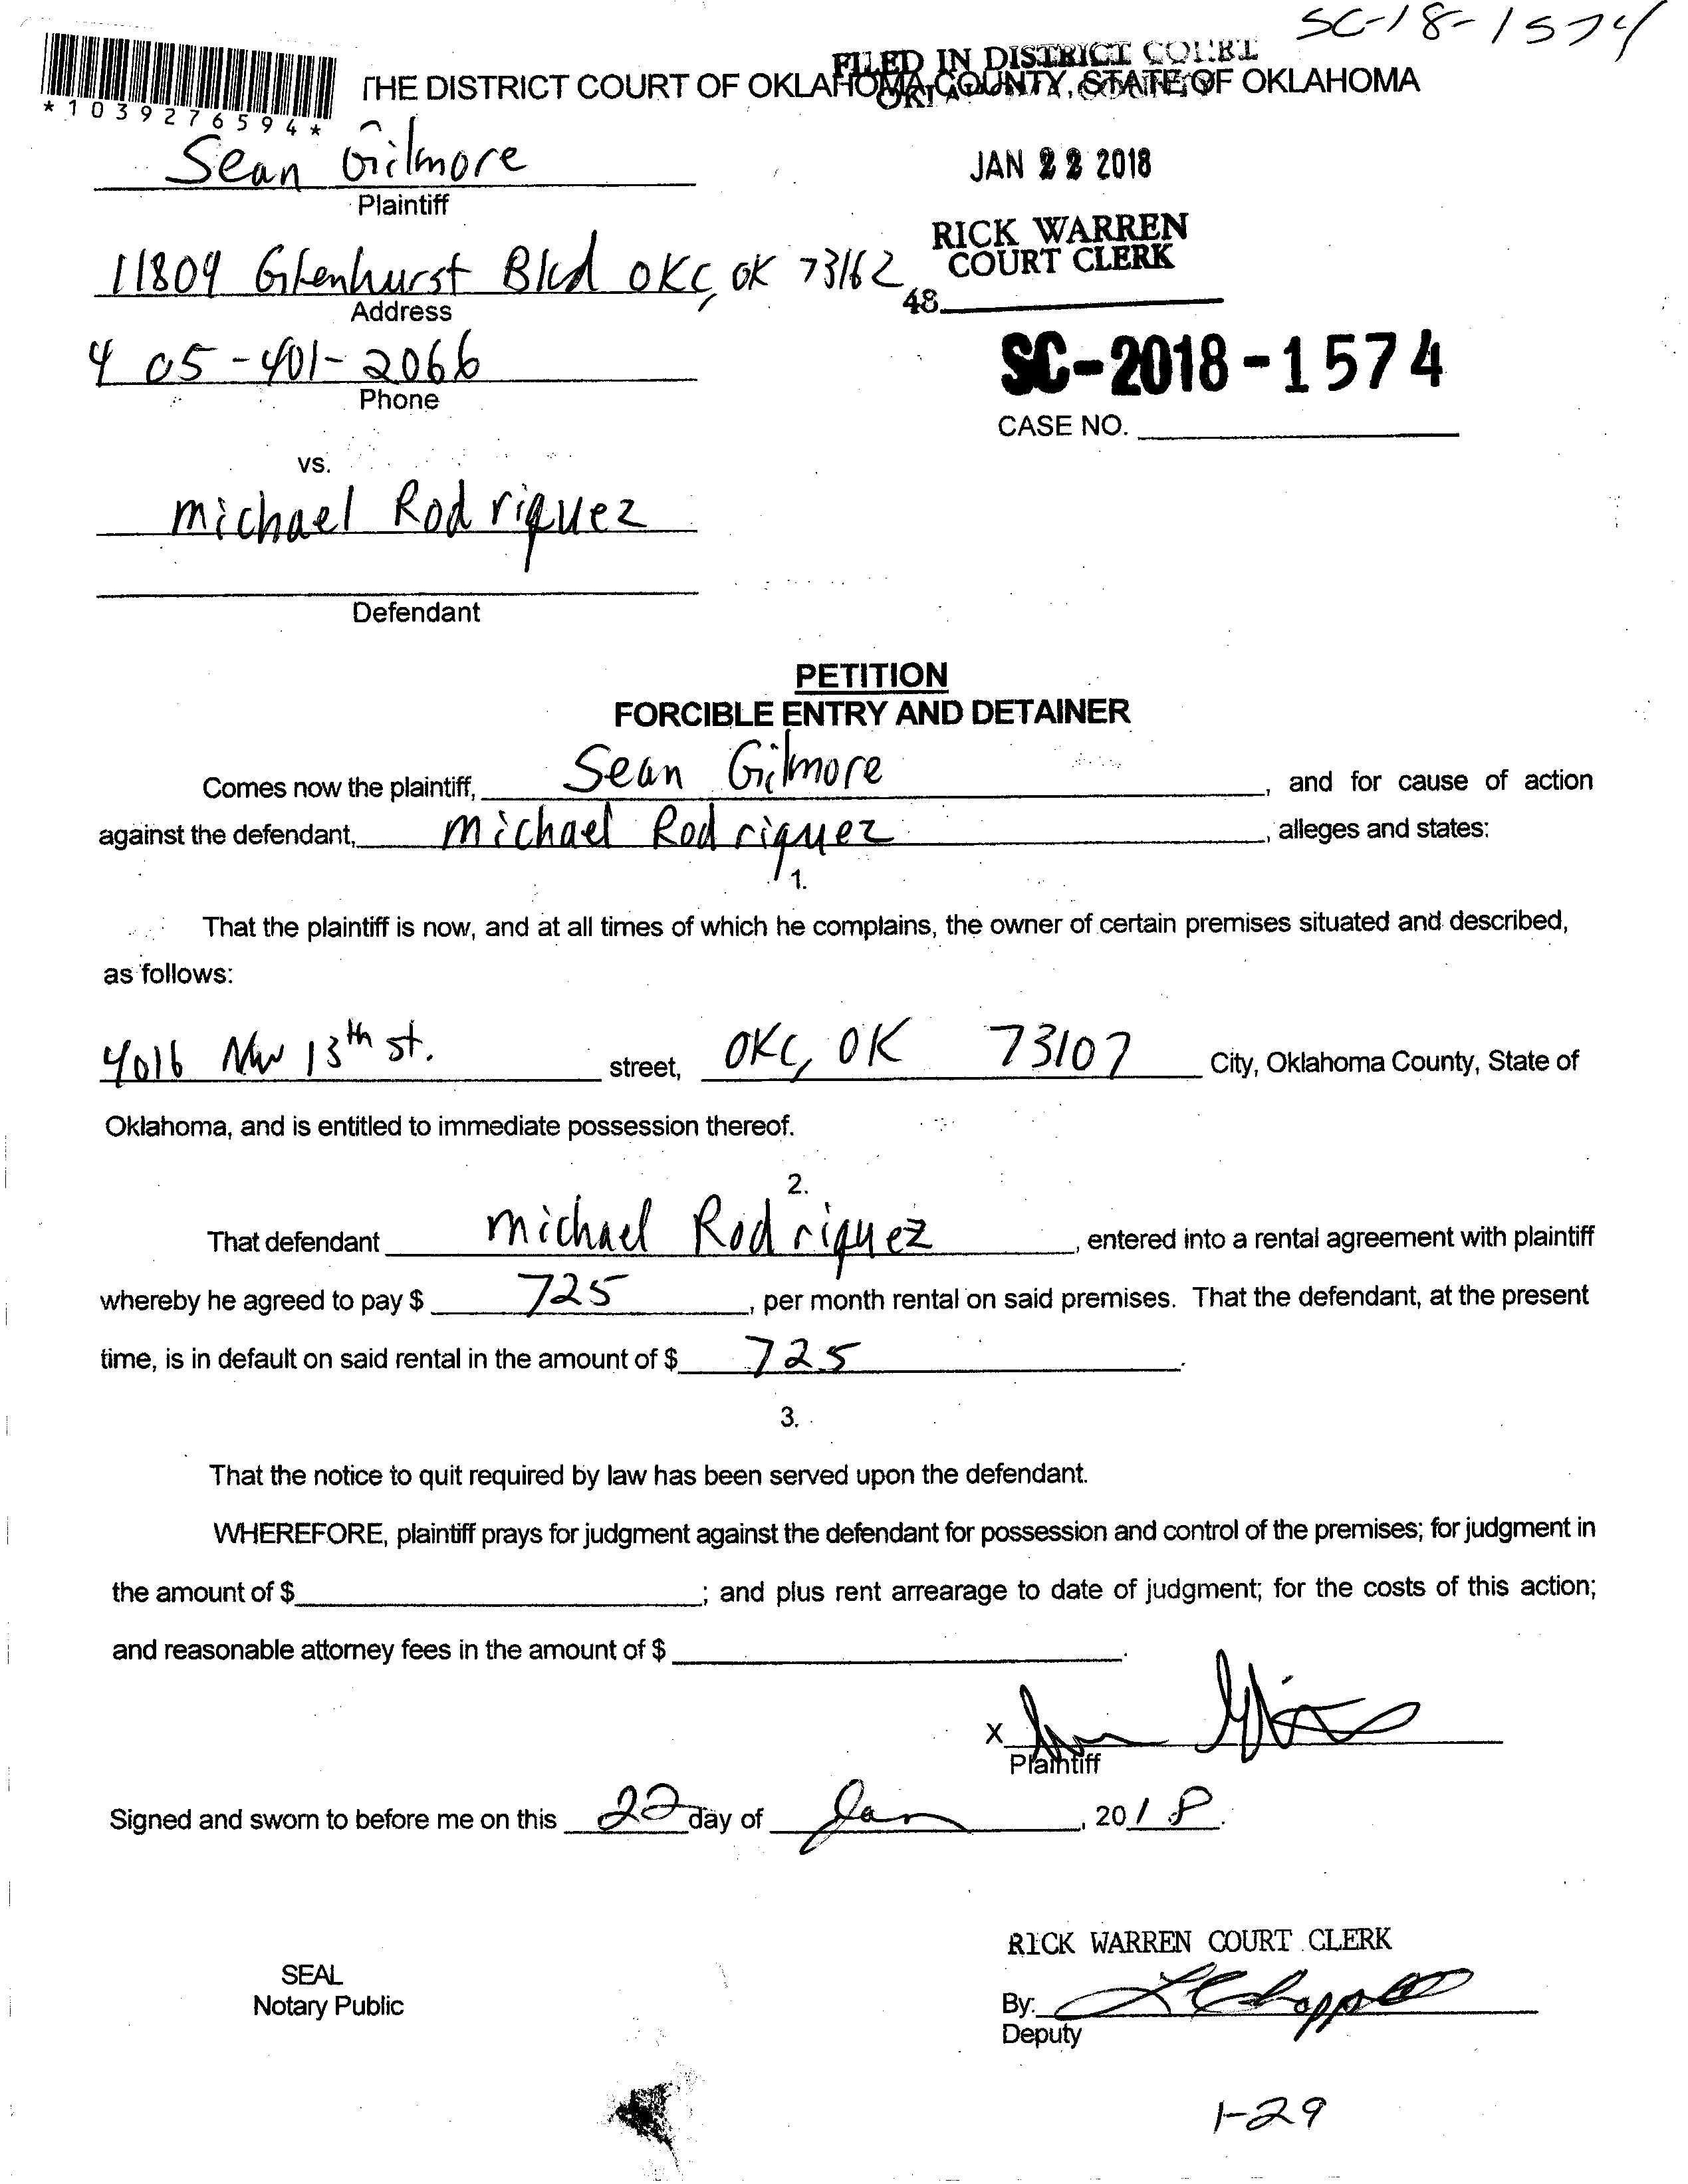 SC-18-1574
FILED IN DISTRICT COURT
THE DISTRICT COURT OF OKLAHOMA COUNTY, STATE OF OKLAHOMA
*1039276594*
Sean Gilmore
JAN 22 2018
Plaintiff
RICK WARREN
COURT CLERK
11809 Blvd OKC, OK 73162
48
Address
405-401-2066
SC-2018-1574
Phone
CASE NO.
vs.
Michael Rodriquez
Defendant
PETITION
FORCIBLE ENTRY AND DETAINER
Comes now the plaintiff, Sean Gilmore, and for cause of action
against the defendant, Michael Rodriquez, alleges and states:
1.
That the plaintiff is now, and at all times of which he complains, the owner of certain premises situated and described,
as follows:
4016 NW 13th st. street, OKC, OK 73107 City, Oklahoma County, State of
Oklahoma, and is entitled to immediate possession thereof.
2.
That defendant Michael Rodriquez, entered into a rental agreement with plaintiff
whereby he agreed to pay $ 725, per month rental on said premises. That the defendant, at the present
time, is in default on said rental in the amount of $ 725.
3.
That the notice to quit required by law has been served upon the defendant.
WHEREFORE, plaintiff prays for judgment against the defendant for possession and control of the premises; for judgment in
the amount of $ ; and plus rent arrearage to date of judgment; for the costs of this action;
and reasonable attorney fees in the amount of $ .
X
Plaintiff
Signed and sworn to before me on this 22 day of Jan, 2018.
RICK WARREN COURT CLERK
SEAL
Notary Public
By:
Deputy
1-29